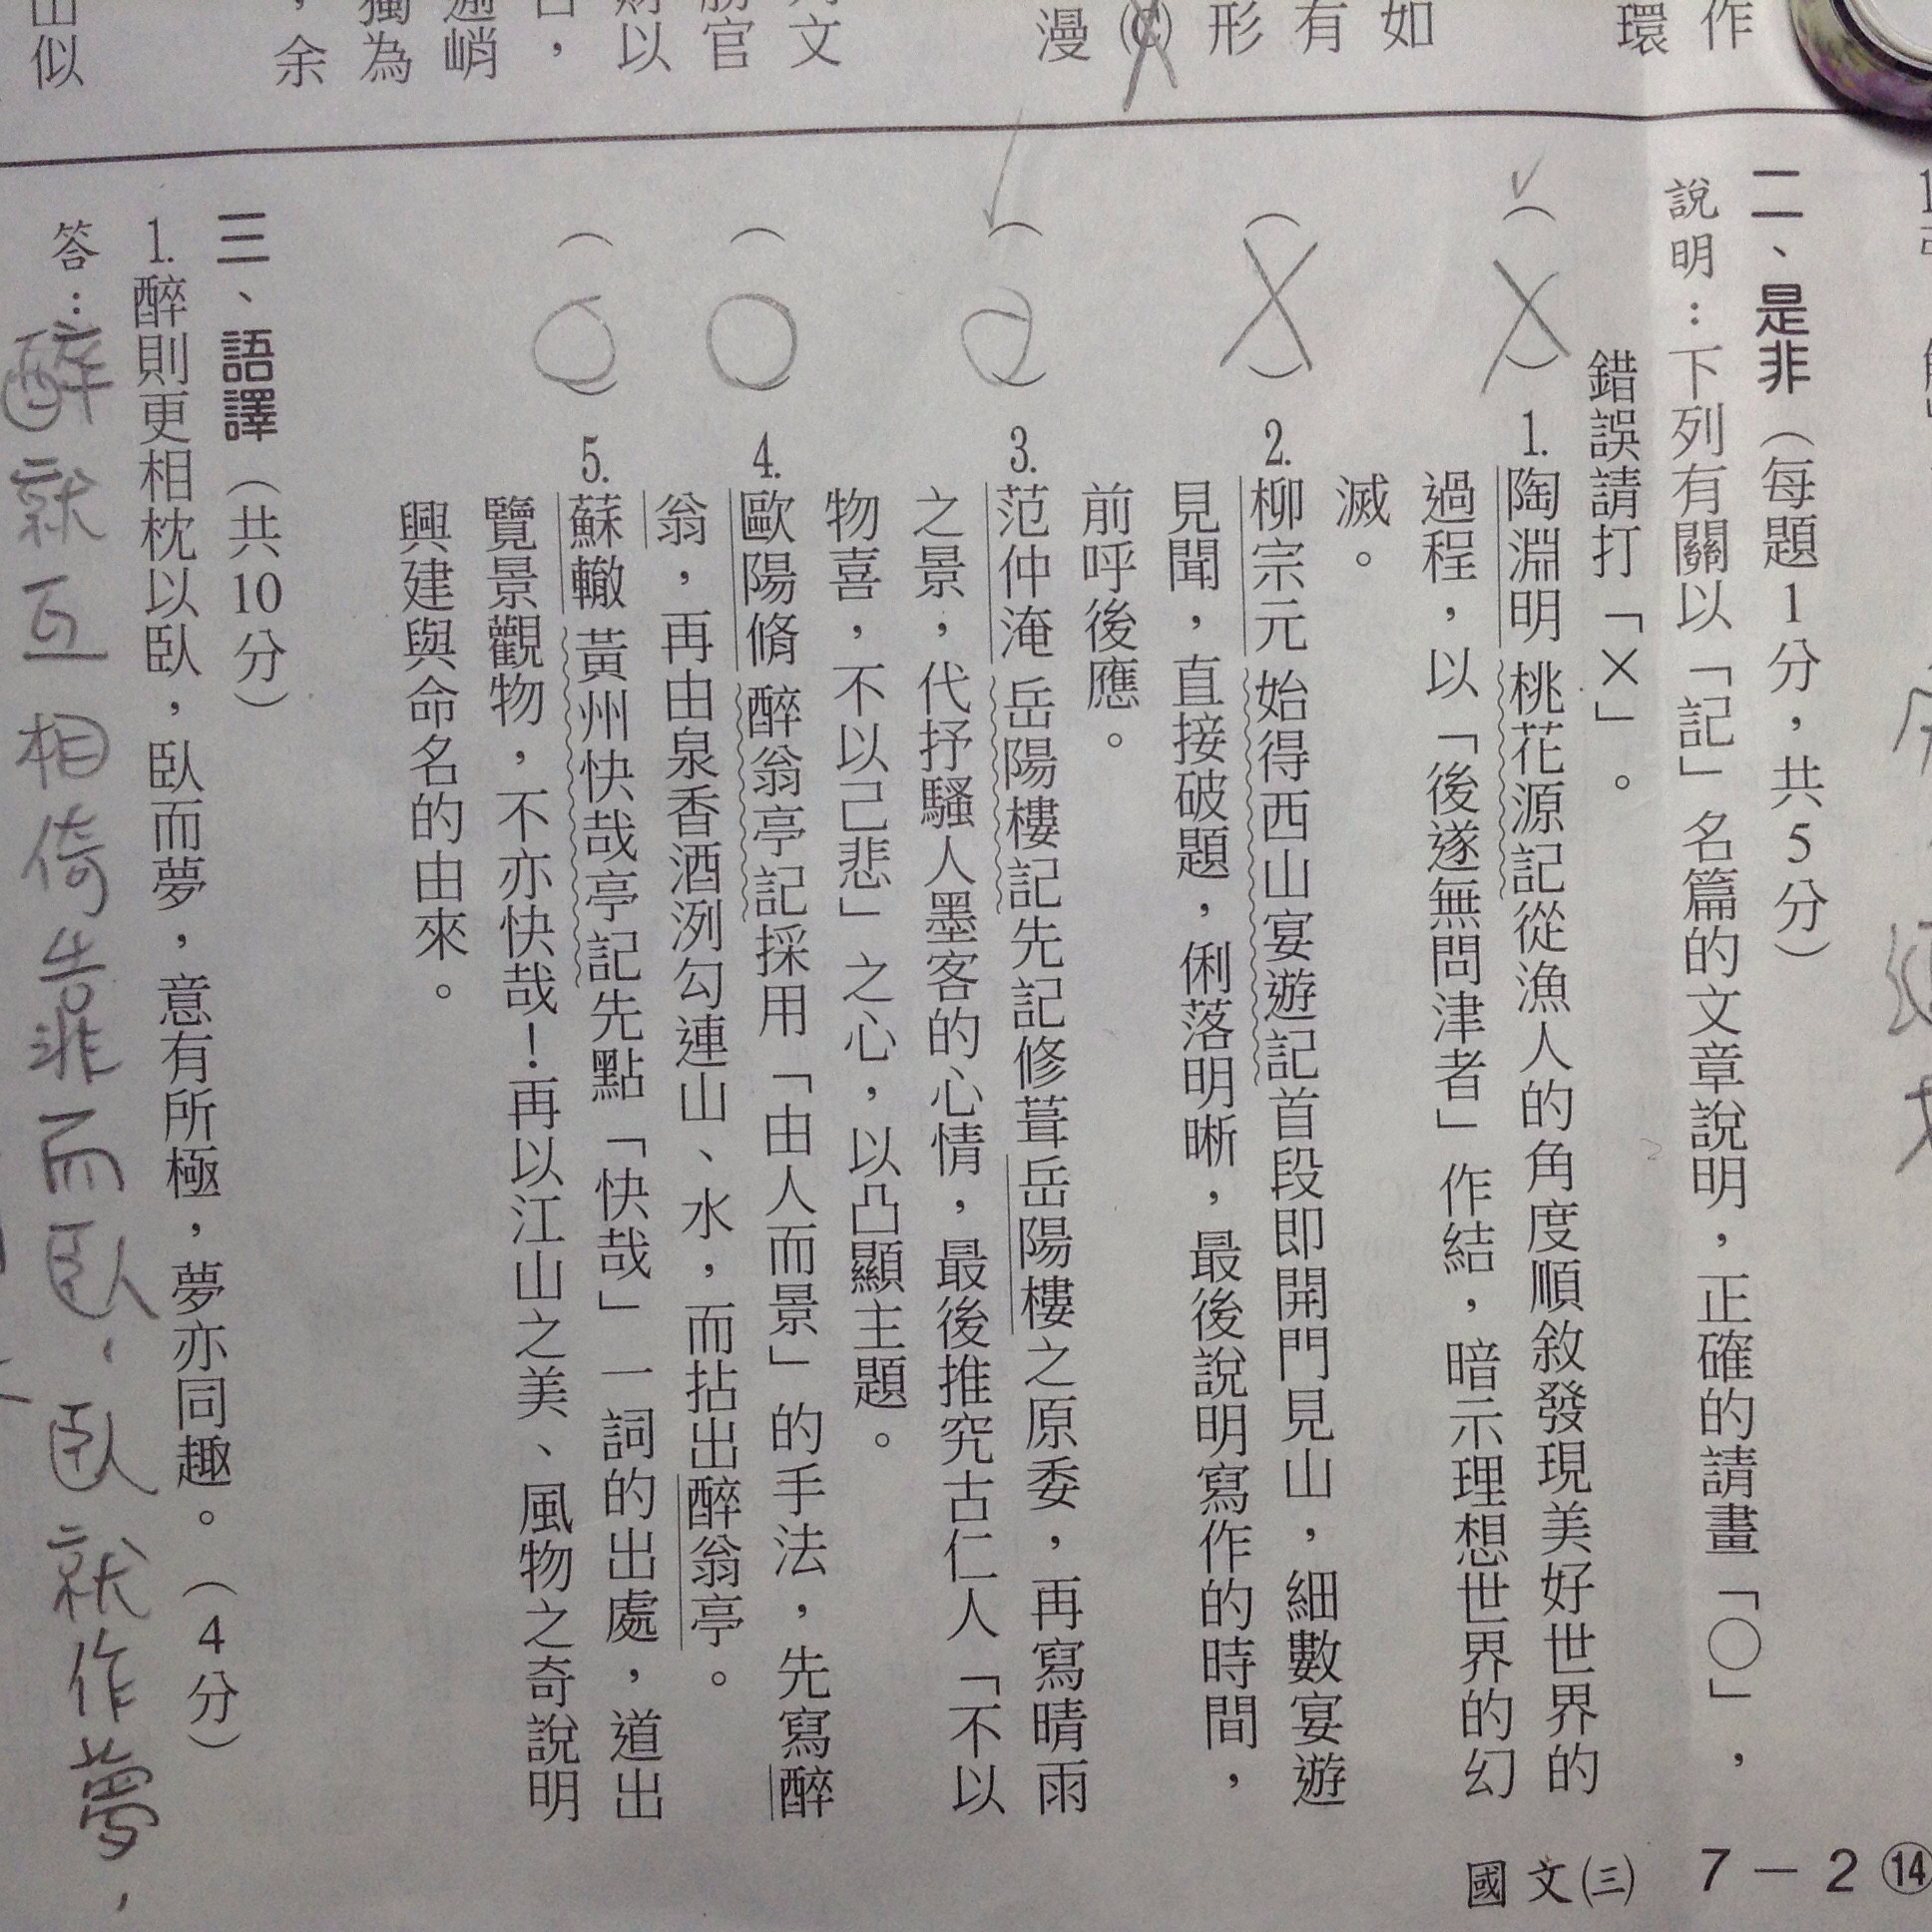 作
環
如
有
形
(C)
漫
文
官
以
，
峭
獨為
，余
似
二、是非（每題1分，共5分）
說明：下列有關以「記」名篇的文章說明，正確的請畫「○」，
錯誤請打「×」。
（X）1.陶淵明桃花源記從漁人的角度順敘發現美好世界的
過程，以「後遂無問津者」作結，暗示理想世界的幻
滅。
（X）2.柳宗元始得西山宴遊記首段即開門見山，細數宴遊
見聞，直接破題，俐落明晰，最後說明寫作的時間，
前呼後應。
（○）3.范仲淹岳陽樓記先記修葺岳陽樓之原委，再寫晴雨
之景，代抒騷人墨客的心情，最後推究古仁人「不以
物喜，不以己悲」之心，以凸顯主題。
（○）4.歐陽脩醉翁亭記採用「由人而景」的手法，先寫醉
翁，再由泉香酒洌勾連山、水，而拈出醉翁亭。
（○）5.蘇轍黃州快哉亭記先點「快哉」一詞的出處，道出
覽景觀物，不亦快哉！再以江山之美、風物之奇說明
興建與命名的由來。
三、語譯（共10分）
1.醉則更相枕以臥，臥而夢，意有所極，夢亦同趣。（4分）
答：醉就互相倚靠而臥，臥就作夢，
國文(三) 7－2 ⑭